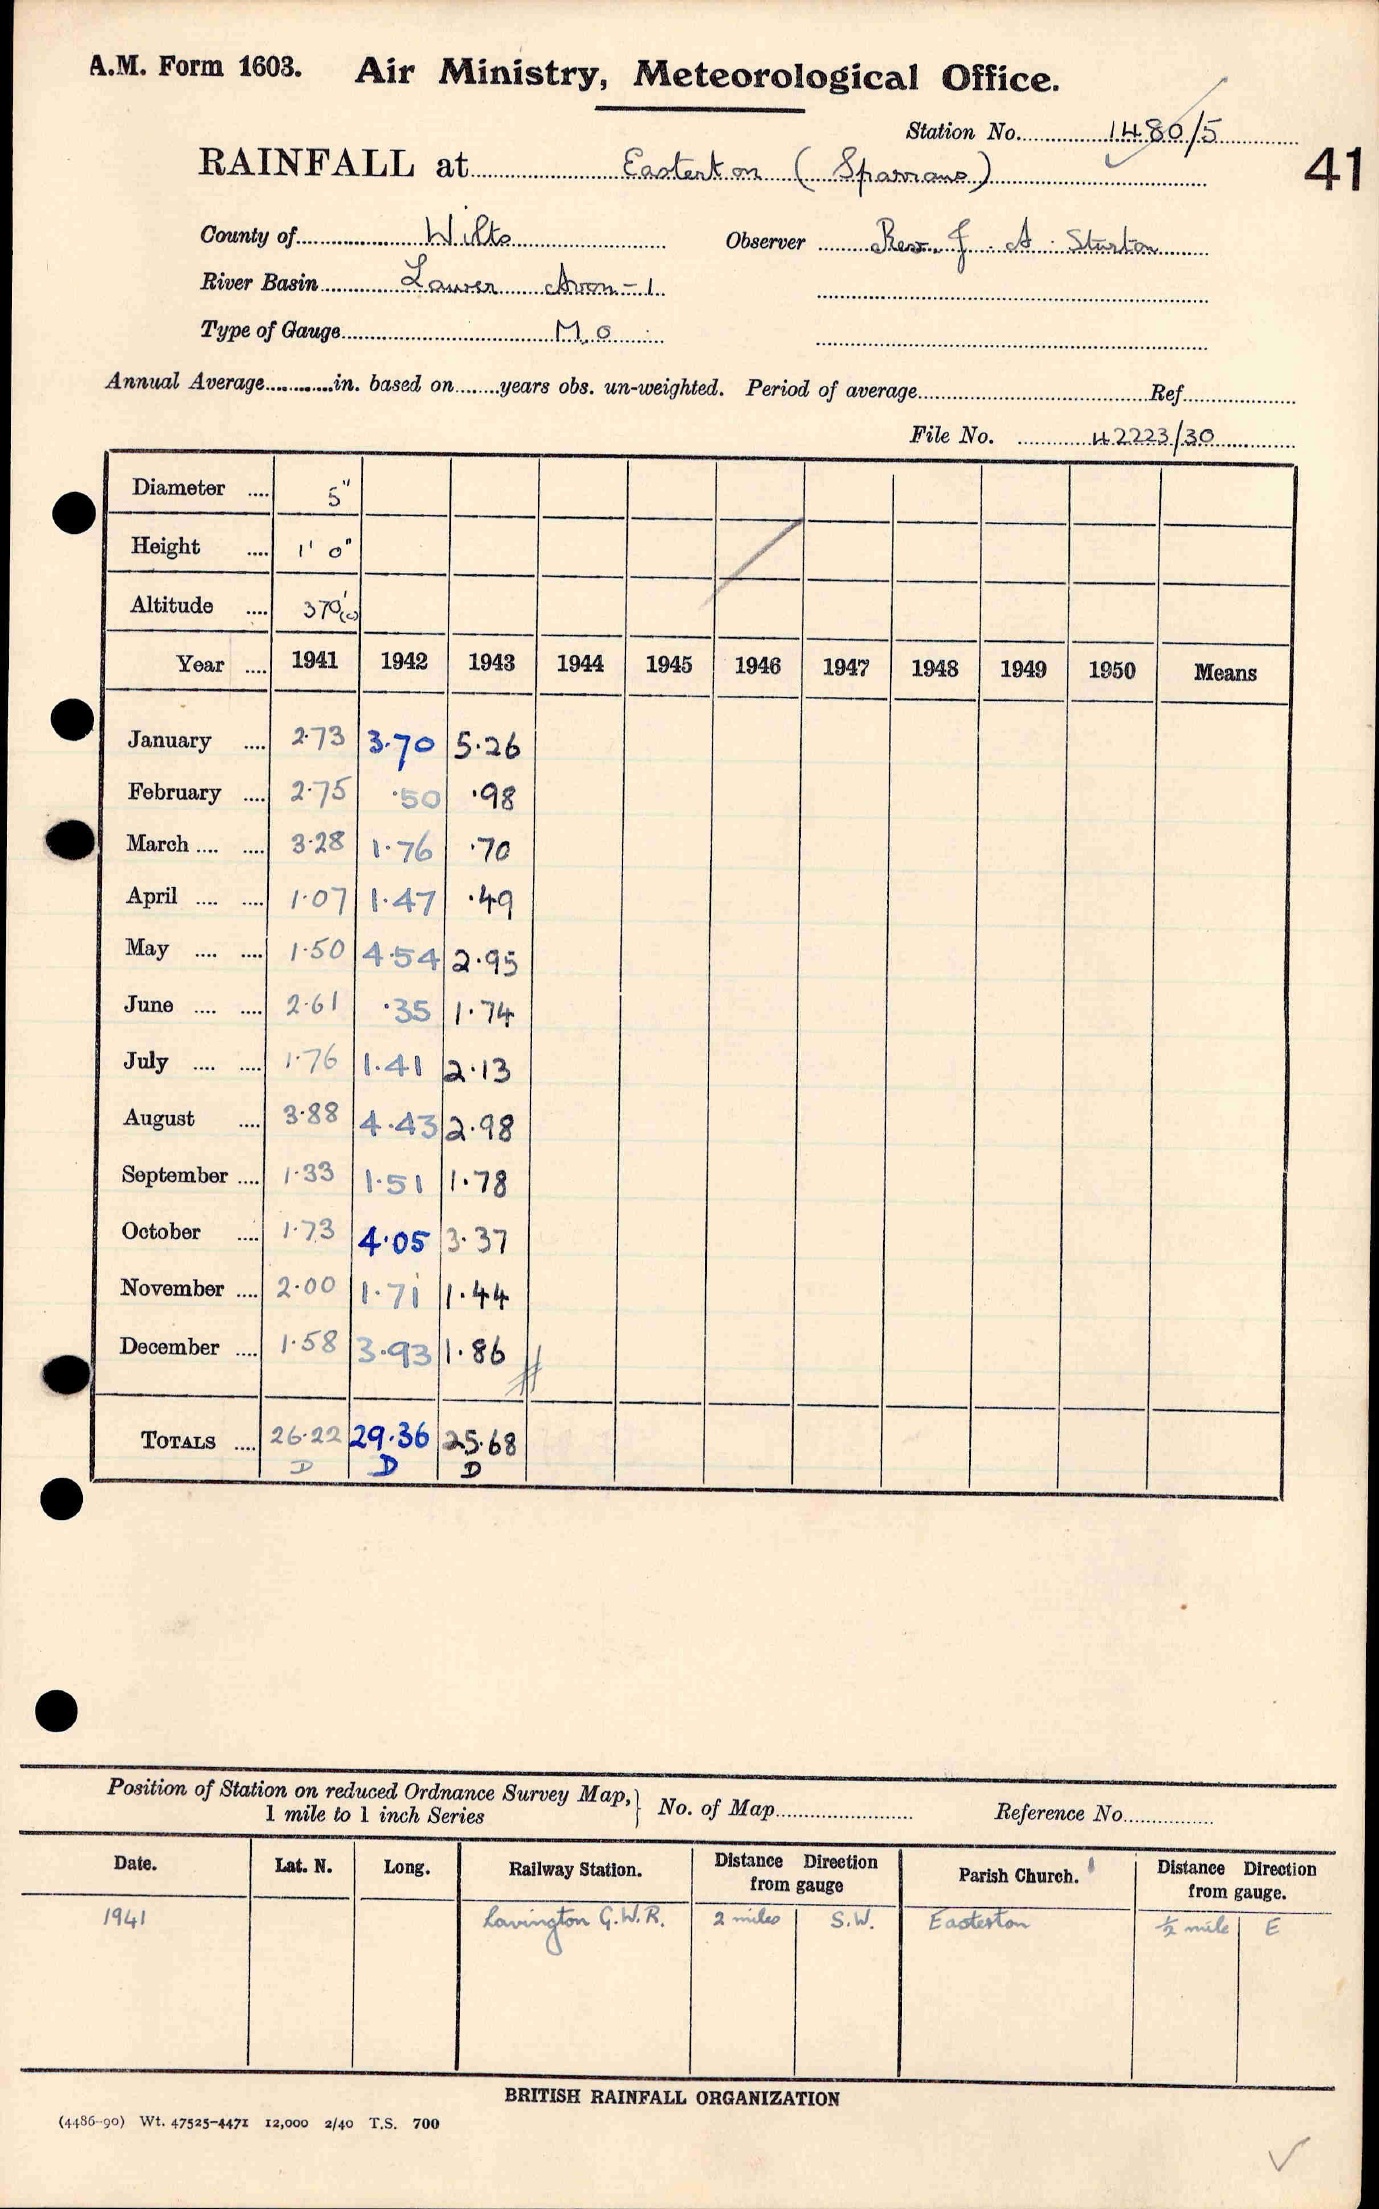 A.M. Form 1603. Air Ministry, Meteorological Office.
Station No. 1480/5
41
RAINFALL at Easterton (Sparrans)
County of Wilts Observer Rev. J. A. Sturton
River Basin Lower Avon - 1
Type of Gauge M.O
Annual Average............in. based on........years obs. un-weighted. Period of average.......... Ref..........
File No. 42223/30
Diameter .... 5"
Height .... 1' 0"
Altitude .... 370'(c)
Year .... 1941 1942 1943 1944 1945 1946 1947 1948 1949 1950 Means
January .... 2.73 3.70 5.26
February .... 2.75 .50 .98
March .... .... 3.28 1.76 .70
April .... .... 1.07 1.47 .49
May .... .... 1.50 4.54 2.95
June .... .... 2.61 .35 1.74
July .... .... 1.76 1.41 2.13
August .... 3.88 4.43 2.98
September .... 1.33 1.51 1.78
October .... 1.73 4.05 3.37
November .... 2.00 1.71 1.44
December .... 1.58 3.93 1.86
TOTALS .... 26.22 29.36 25.68
D D D
Position of Station on reduced Ordnance Survey Map,
1 mile to 1 inch Series
No. of Map.......... Reference No..........
Date. Lat. N. Long. Railway Station. Distance Direction from gauge Parish Church. Distance Direction from gauge.
1941 Lavington G.W.R. 2 miles S.W. Easterton ½ mile E
BRITISH RAINFALL ORGANIZATION
(4486-90) Wt. 47525-4471 12,000 2/40 T.S. 700